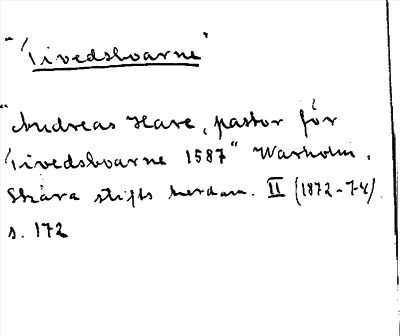 "Tivedsboarne"
"Andreas Hare, pastor för
Tivedsboarne 1587" Warholm,
Skara stifts herdam. II (1872-74)
s. 172